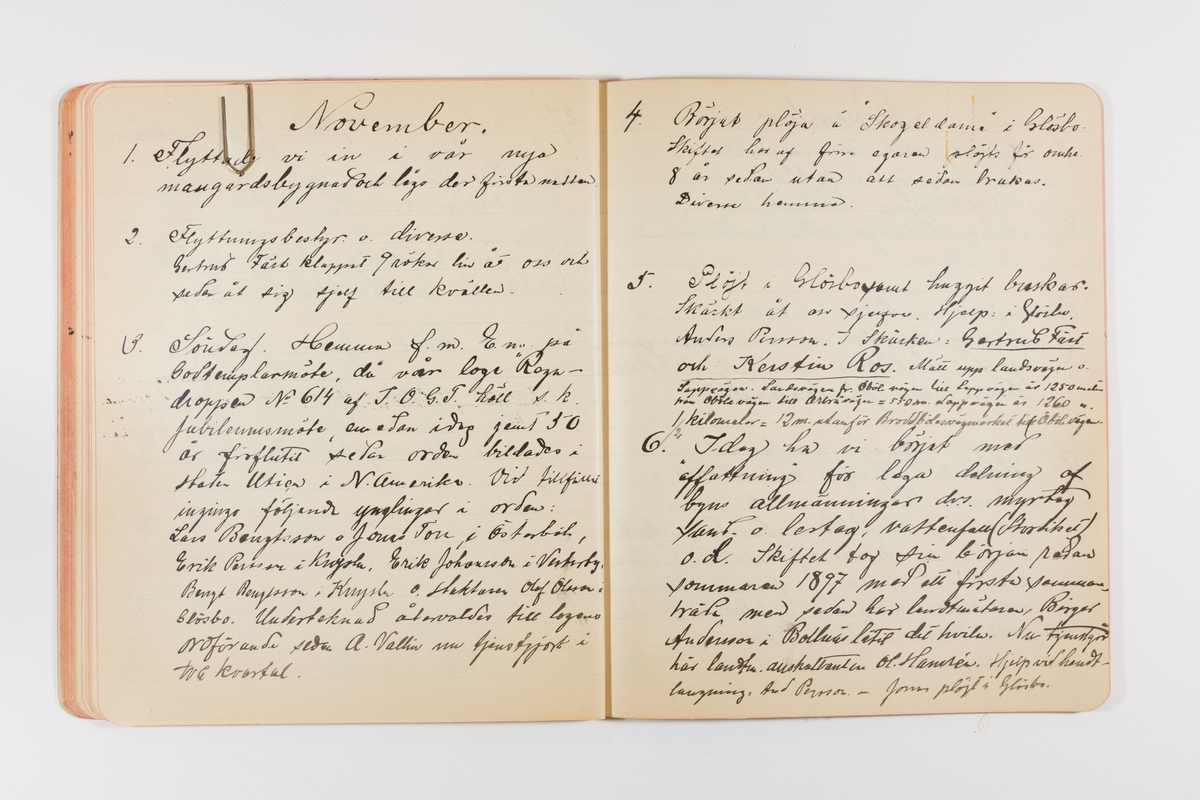 November.
1. Flyttade vi in i vår nya
mangårdsbygnad och lågo der första natten.
2. Flyttningsbestyr. o. diverse.
Gertrud Fäst klappat 9 rökar lin åt oss och
sedan åt sig sjelf till kvällen.
3. Söndag. Hemma f.m. E.m. på
Godtemplarmöte, då vår loge "Regn-
droppen No 614 af I.O.G.T. höll s.k.
Jubileumsmöte, emedan idag jemt 50
år förflutit sedan orden bildades i
staden Utica i N. Amerika. Vid tillfället
ingingo följande ynglingar i orden:
Lars Bengtsson o Jonas Tore, i Österböle,
Erik Persson i Knysla, Erik Johansson i Vesterby,
Bengt Bengtsson i Knysla o. Olof Olsson i
Glösbo. Undertecknad återvaldes till logens
ordförande sedan A. Vallin nu tjenstgjort i
två kvartal.
4. Börjat plöja å "Skogeldama" i Glösbo.
Skiftet har af förra egaren plöjts för omkr.
8 år sedan utan att sedan brukas.
Diverse hemma.
5. Plöjt i Glösbo samt huggit buskar.
Skäckt åt oss sjelfva. Hjelp: i Glösbo,
Anders Persson. I Skäcken: Gertrud Fäst
och Kerstin Ros. Mätt upp landsvägen o.
Lappvägen. Landsvägen fr. Öbölevägen till Lappvägen är 1250 meter
från Öbölevägen till = 550 m. Lappvägen är 1260 m.
1 kilometer = 12 m. utanför Brodtbölesvägmärket till Öbölevägen.
6. Idag ha vi börjat med
"affattning" för laga delning af
byns allmänningar dvs. myrtag
sand- o. lertag, vattenfall (Storhiset)
o.d. Skiftet tog sin början redan
sommaren 1897 med ett första samman-
träde men sedan har landtmätaren, Börger
Andersson i Bollnäs låtit det hvila. Nu tjenstgör
här landtm. auskultanten Ol. Hamrén. Hjelp vid handt-
langning: And Persson. — Jonas plöjt i Glösbo.